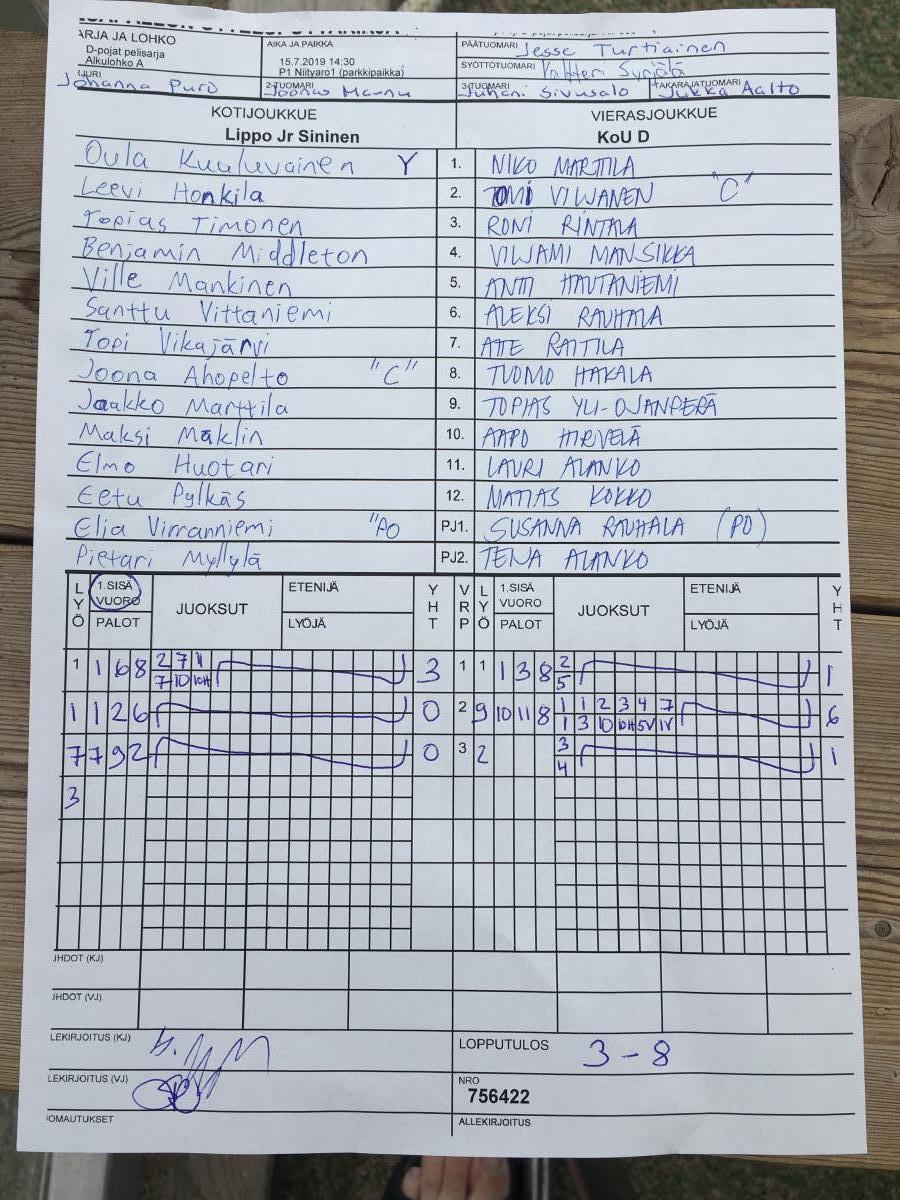 ARJA JA LOHKO
D-pojat pelisarja
Alkulohko A
AIKA JA PAIKKA
15.7.2019 14:30
P1 Niityaro1 (parkkipaikka)
PÄÄTUOMARI Jesse Turtiainen
SYÖTTÖTUOMARI
JURI Johanna Puro
2-TUOMARI Joonas
3-TUOMARI Juhani Sivusalo
TAKARAJATUOMARI Jukka Aalto
KOTIJOUKKUE
Lippo Jr Sininen
VIERASJOUKKUE
KoU D
Oula Kuuluvainen Y 1. NIKO MARTTILA
Leevi Honkila 2. TOMI VILJANEN "C"
Topias Timonen 3. RONI RINTALA
Benjamin Middleton 4. VILJAMI MANSIKKA
Ville Mankinen 5. ANTTI HAUTANIEMI
Santtu Vittaniemi 6. ALEKSI RAUHALA
Topi Vikajärvi 7. ATTE RAITILA
Joona Ahopelto "C" 8. TUOMO HAKALA
Jaakko Marttila 9. TOPIAS YLI-OJANPERÄ
Maksi Mäklin 10. AAPO HIRVELÄ
Elmo Huotari 11. LAURI ALANKO
Eetu Pylkäs 12. MATIAS KOKKO
Elia Virranniemi "PO PJ1. SUSANNA RAUHALA (PO)
Pietari Myllylä PJ2. TEIJA ALANKO
LYÖ 1.SISÄ VUORO PALOT JUOKSUT ETENIJÄ LYÖJÄ YHT VRP LYÖ 1.SISÄ VUORO PALOT JUOKSUT ETENIJÄ LYÖJÄ YHT
1 1 6 8 2 7 11 3 1 1 1 3 8 2 1
7 10 10H 5
1 1 2 6 0 2 9 10 11 8 1 1 2 3 4 7 6
1 3 10 10H 5V 1V
7 7 9 2 0 3 2 3 1
4
3
JHDOT (KJ)
JHDOT (VJ)
LEKIRJOITUS (KJ)
LOPPUTULOS 3-8
LEKIRJOITUS (VJ)
NRO
756422
OMAUTUKSET
ALLEKIRJOITUS